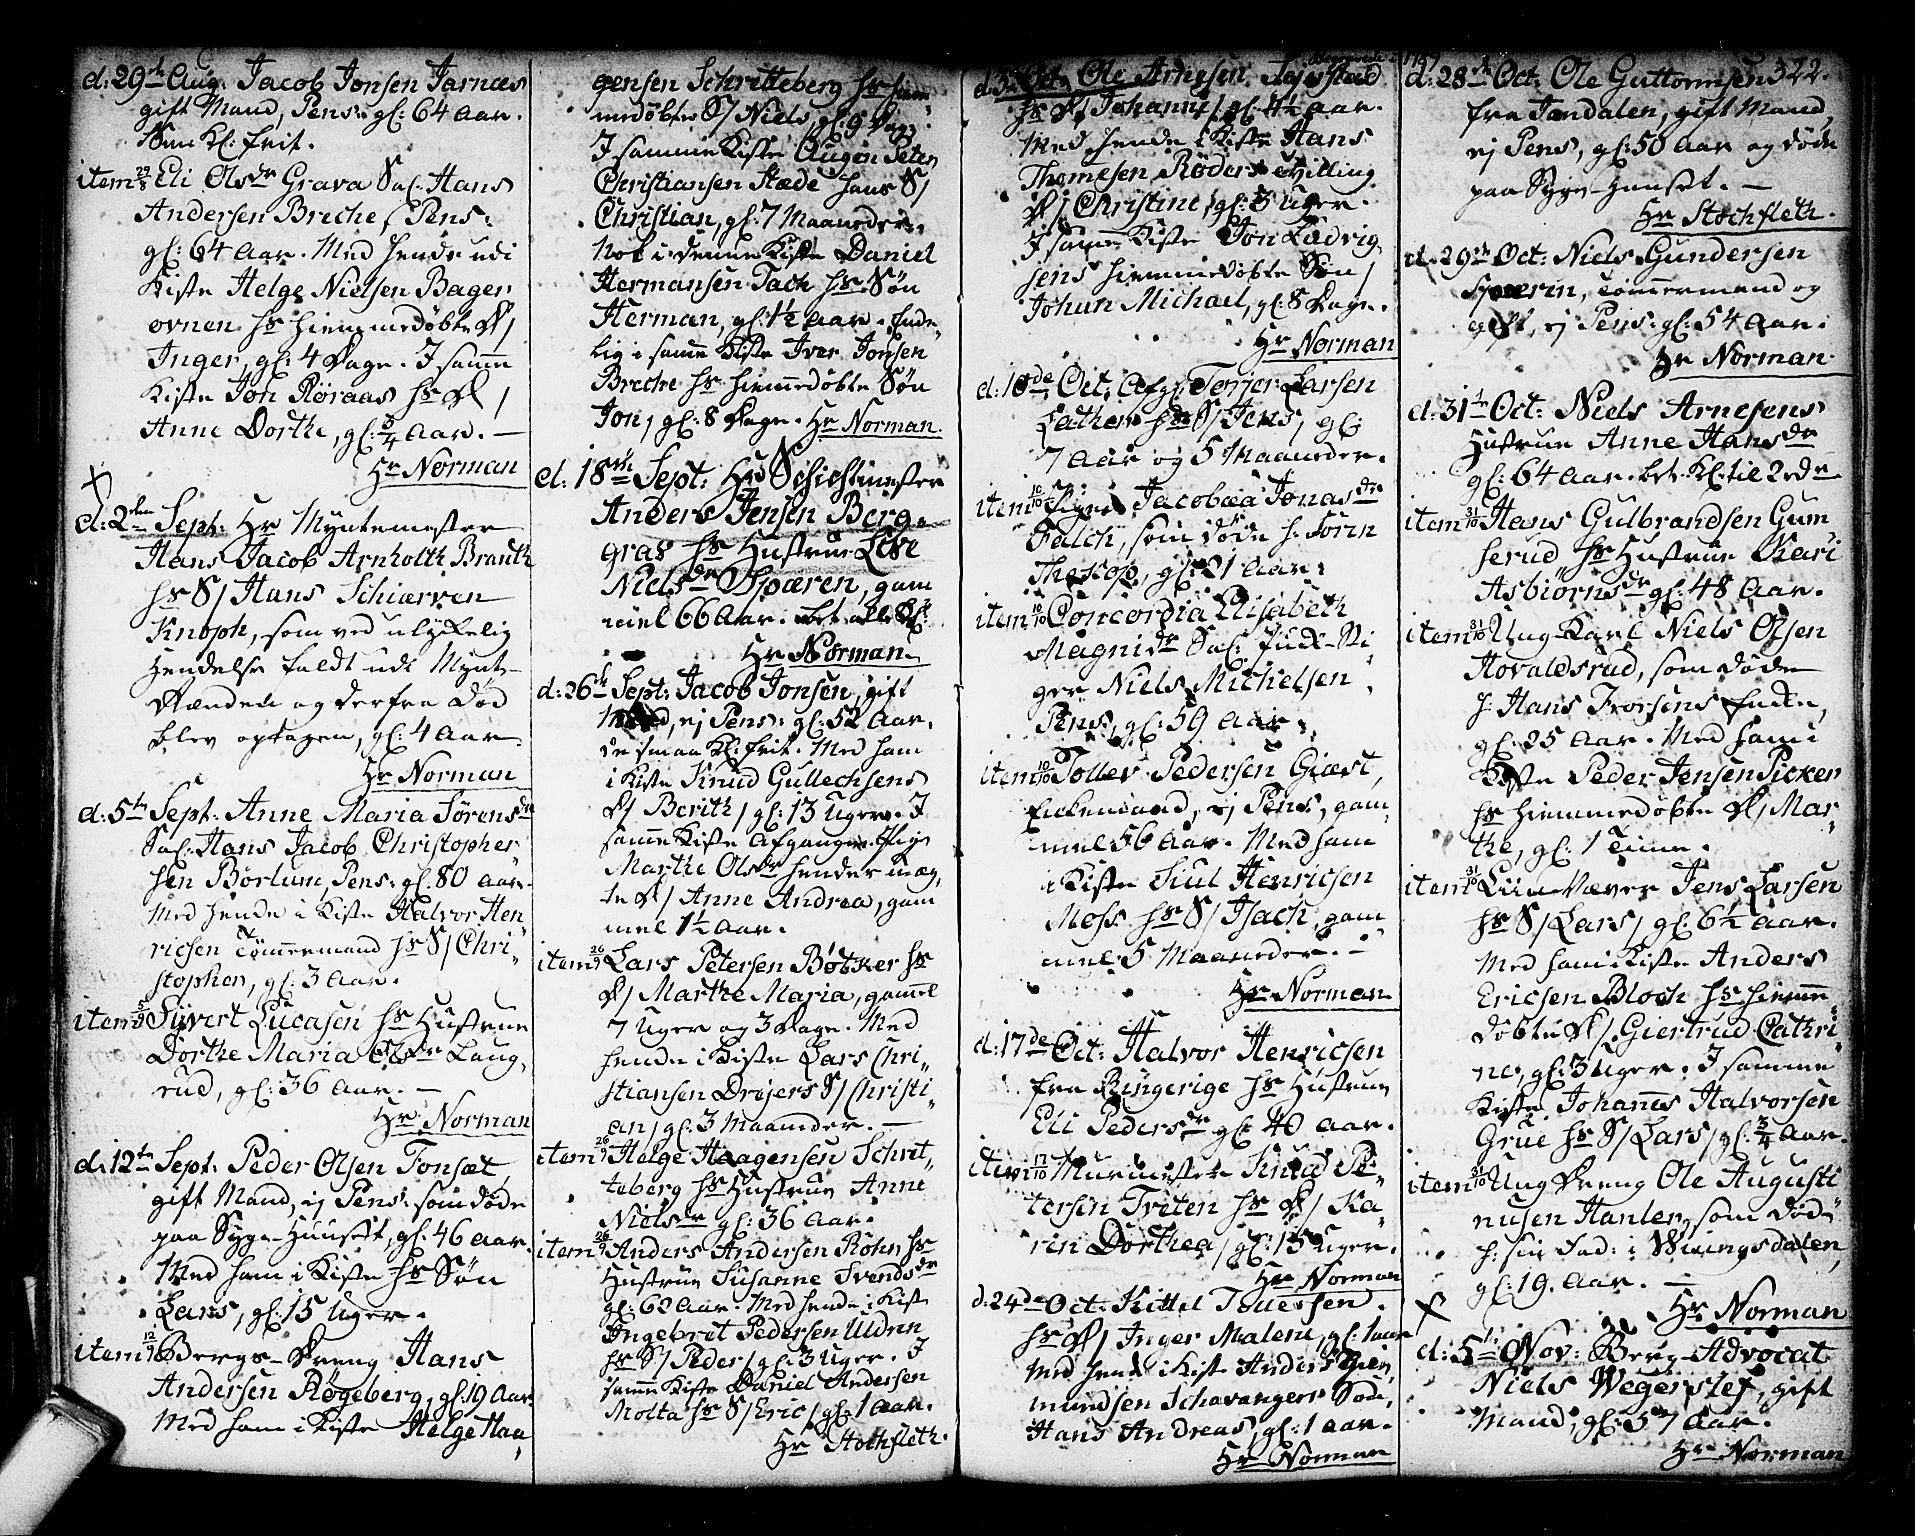 d. 29de Aug. Jacob Jonsen Jarnæs
gift Mand, Pens: gl: 64 Aar.
Kl: frit.
item 29/8 Eli Olsdr Grava Sal. Hans
Andersen Breche, Pens:
gl: 64 Aar. Med hende udi
Kiste Helge Nielsen Bager
ovnen hs hiemmedøbte D/
Inger, gl: 4 Dage. I samme
Kiste Jon Røraas hs D/
Anne Dorthe, gl: 3/4 Aar. —
Hr Norman
d: 2den Sept: Hr Myntemester
Hans Jacob Arnholth Brauth
hs S/ Hans Schiærven
Knoph, som ved ulykelig
Hendelse faldt udi Mynte
Dænden og derfra Død
blev optagen, gl: 4 Aar.
Hr Norman
d: 5te Sept: Anne Maria Sørensdr
Sal: Hans Jacob Christopher
sen Børlum, Pens: gl: 80 Aar.
Med hende i Kiste Halvor Hen
ricsen Tømmermand hs S/ Chri
stopher, gl: 3 Aar.
item 5/9 Sivert Lucasen hs Hustrue
Dorthe Maria Olsdr Laug
rud, gl: 36 Aar. —
Hr Norman
d: 12te Sept: Peder Olsen Tonsæt
gift Mand, ej Pens: som døde
paa Syge-Huuset, gl: 46 Aar.
Med ham i Kiste hs Søn
Lars, gl: 15 Uger.
item 12/9 Bergs-Dreng Hans
Andersen Røgeberg, gl: 19 Aar
Med ham i Kiste Helge Haa
gensen Schretteberg hs hiem
medøbte S/ Niels, gl: 9 Dage.
I samme Kiste Augen Peter
Christiansen Stæde hans S/
Christian, gl: 7 Maaneder.
Nok i denne Kiste Daniel
Hermansen Tach hs Søn
Herman, gl: 1½ Aar. Ende
lig i samme Kiste Iver Jonsen
Breche hs hiemmedøbte Søn
Jon, gl: 8 Dage. Hr Norman.
d: 18de Sept: Hr Schichtmester
Anders Jensen Berg
graf hs Hustrue Lise
Nielsdr Spæren, gam
mel 66 Aar. bet: alle Kl:
Hr Norman
d: 26de Sept: Jacob Jonsen, gift
Mand, ej Pens: gl: 52 Aar.
de smaa Kl: frit. Med ham
i Kiste Knud Gullechsens
D/ Berith, gl: 13 Uger. I
samme Kiste Afgangen Pige
Marthe Olsdr hendes uæg
te D/ Anne Andrea, gam
mel 1½ Aar.
item 26/9 Lars Petersen Bøtker hs
D/ Marthe Maria, gammel
7 Uger og 3 Dage. Med
hende i Kiste Lars Chri
stiansen Drejers S/ Christi
an, gl: 3 Maaneder. —
item 26/9 Helge Haagensen Schrit
teberg hs Hustrue Anne
Nielsdr gl: 36 Aar.
item 26/9 Anders Andersen Rohn hs
Hustrue Susanne Svendsdr
gl: 60 Aar. Med hende i Kiste
Ingebret Pedersen Uldrin
hs S/ Peder, gl: 3 Uger. I
samme Kiste Daniel Andersen
Molta hs S/ Eric, gl: 1 Aar.
Hr Stochfleth.
Begravede 1789
d: 3de Oct: Ole Arnesen
hs D/ Johanne, gl: 4½ Aar.
Med hende i Kiste Hans
Thomesen Røders Tvilling
D/ Christine, gl: 3 Uger.
I samme Kiste Jon Ludvig
sens hiemmedøbte Søn
Johan Michael, gl: 8 Dage.
Hr Norman
d: 10de Oct: Afg: Terjer Larsen
Lathen hs S/ Jens, gl:
7 Aar og 5 Maaneder.
item 10/10 Signe Jacobæa Jonasdr
Falch, som døde h: Søren
Thoscop, gl: 21 Aar.
item 10/10 Concordia Elisabeth
Magnidr Sal: Puck-Sti
ger Niels Michelsen
Pens, gl: 59 Aar.
item 10/10 Tollev Pedersen Giæst,
Enkemand, ej Pens, gam
mel 56 Aar. Med ham
i Kiste Siul Henricsen
Moss hs S/ Isach, gam
mel 5 Maaneder. —
Hr Norman
d: 17de Oct: Halvor Henricsen
fra Ringerige hs Hustrue
Eli Pedersdr gl: 40 Aar.
item 17/10 Murmester Knud Pe
tersen Treten hs D/ Ka
rin Dorthea, gl: 15 Uger.
Hr Norman
d: 24de Oct: Kittel Tollersen
hs D/ Inger Malene, gl: 1 Aar
Med hende i Kiste Anders Gien
mundsen Schavangers Søn,
Hans Andreas, gl: 1 Aar.
Hr Norman
322.
d: 28de Oct: Ole Guttormsen
fra Jondalen, gift Mand,
ej Pens, gl: 50 Aar og døde
paa Syge-Huuset. —
Hr Stochfleth.
d: 29de Oct: Niels Gundersen
Spærin, Tømmermand og
gift, ej Pens: gl: 54 Aar.
Hr Norman.
d: 31te Oct: Niels Arnesens
Hustrue Anne Hansdr
gl: 64 Aar. bet. Kl: til 2 Rdr
item 31/10 Hans Gulbrandsen Gum
serud hs Hustrue Kari
Asbiørnsdr gl: 48 Aar.
item 31/10 Ung-Karl Niels Olsen
Hovaldsrud, som døde
h: Hans Iversens Encke,
gl: 25 Aar. Med ham i
Kiste Peder Jensen Picker
hs hiemmedøbte D/ Mar
the, gl: 1 Time.
item 31/10 Liin Væver Jens Larsen
hs S/ Lars, gl: 6½ Aar.
Med ham i Kiste Anders
Ericsen Bloch hs hiemme
døbte D/ Giertrud Cathri
ne, gl: 3 Uger. I samme
Kiste Johannes Halvorsen
Grue hs S/ Lars, gl: 3/4 Aar.
item 31/10 Ung Dreng Ole Augusti
nusen Hanler, som døde
h: sin Fad: i Vivingsdalen,
gl: 19. Aar. —
Hr Norman
d: 5te Nov: Berg-Advocat
Niels Wegerslef, gift
Mand, gl: 57 Aar.
Hr Norman